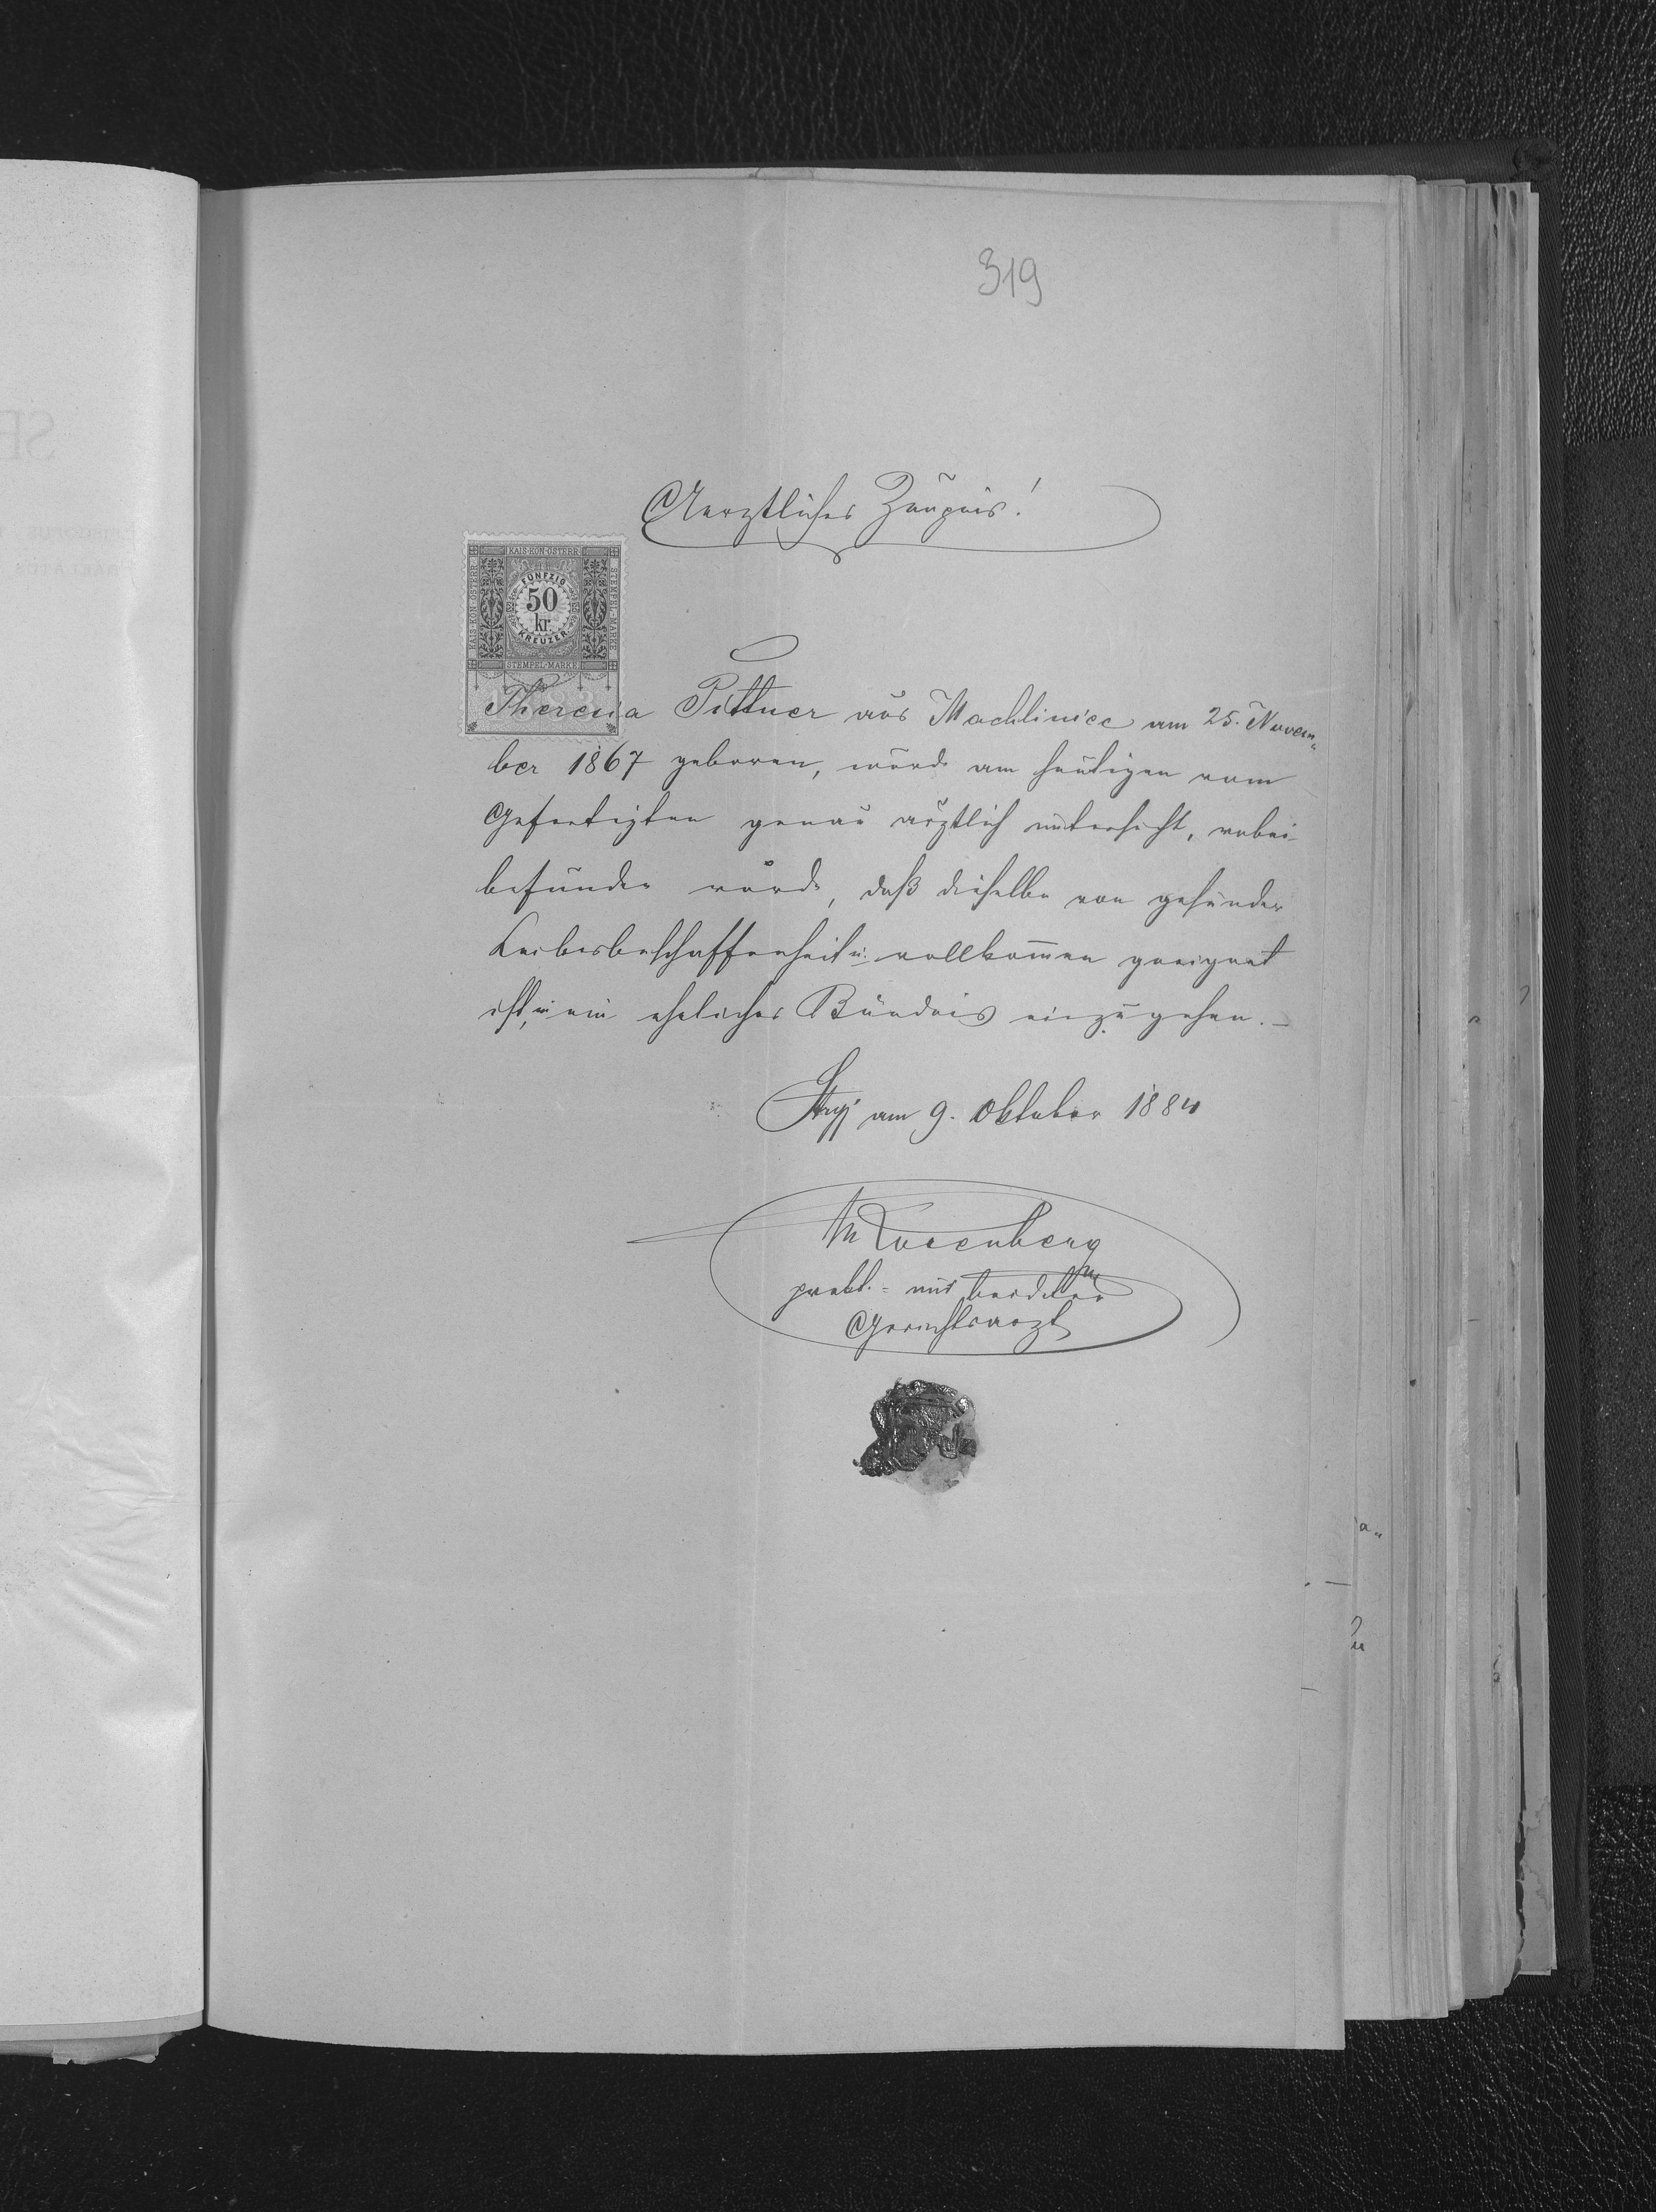 319
Aerztliches Zeugnis!
KAIS. KÖN. ÖSTERR.
KAIS. KÖN. ÖSTERR.
STEMPEL-MARKE
FÜNFZIG
50
kr.
KREUZER
STEMPEL-MARKE
Theresia Pittner aus Machliniec am 25. Novem„
ber 1867 geboren, wurde am heutigen vom
Gefertigten genau ärztlich untersucht, wobei
befunden wurde, daß dieselbe von gesunder
Leibesbeschaffenheit u. vollkom̄en geeignet
ist, in ein eheliches Bündnis einzugehen. –
Stryj am 9. Oktober 1884
prakt. =
Gerichtsarzt